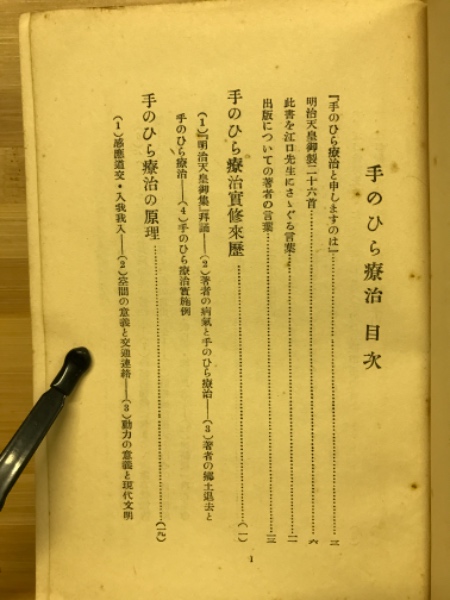 手のひら療治 目次
『手のひら療治と申しますのは』
明治天皇御製二十六首 六
此書を江口先生にさゝぐる言葉
出版についての著者の言葉
手のひら療治實修來歷 (一)
(1)『明治天皇御集』拜誦—(2)著者の病氣と手のひら療治—(3)著者の鄕土退去と
手のひら療治—(4)手のひら療治實施例
手のひら療治の原理 (一九)
(1)感應道交・入我我入—(2)空間の意義と交通連絡—(3)動力の意義と現代文明
1